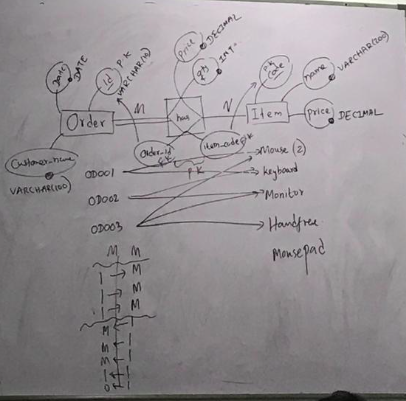 Date
DATE
id
P.K
VARCHAR(10)
Price
DECIMAL
qty
INT
P.K
Code
name
VARCHAR(200)
Order
M
has
N
Item
Price
DECIMAL
Customer-name
VARCHAR(100)
Order_id
F.K
item_code
P.K
OD001
OD002
OD003
Mouse (2)
keyboard
Monitor
Handfree
Mousepad
M M